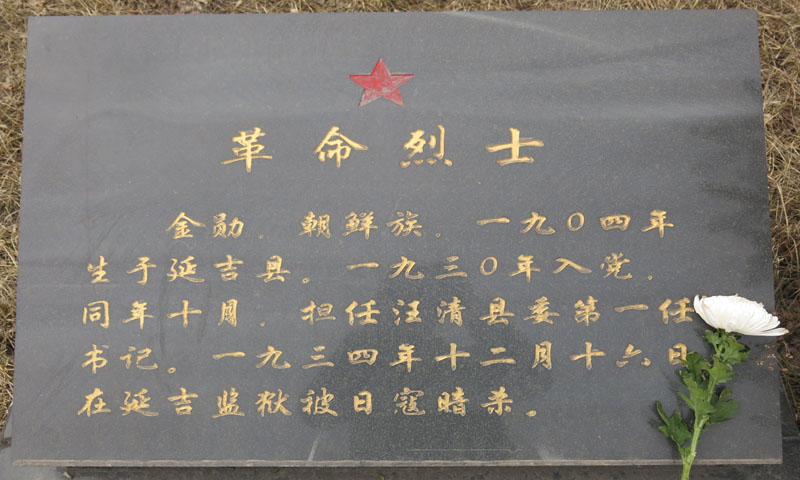 革命烈士
金勋，朝鲜族，一九〇四年
生于延吉县。一九三〇年入党，
同年十月，担任汪清县委第一任
书记。一九三四年十二月十六日
在延吉监狱被日寇暗杀。